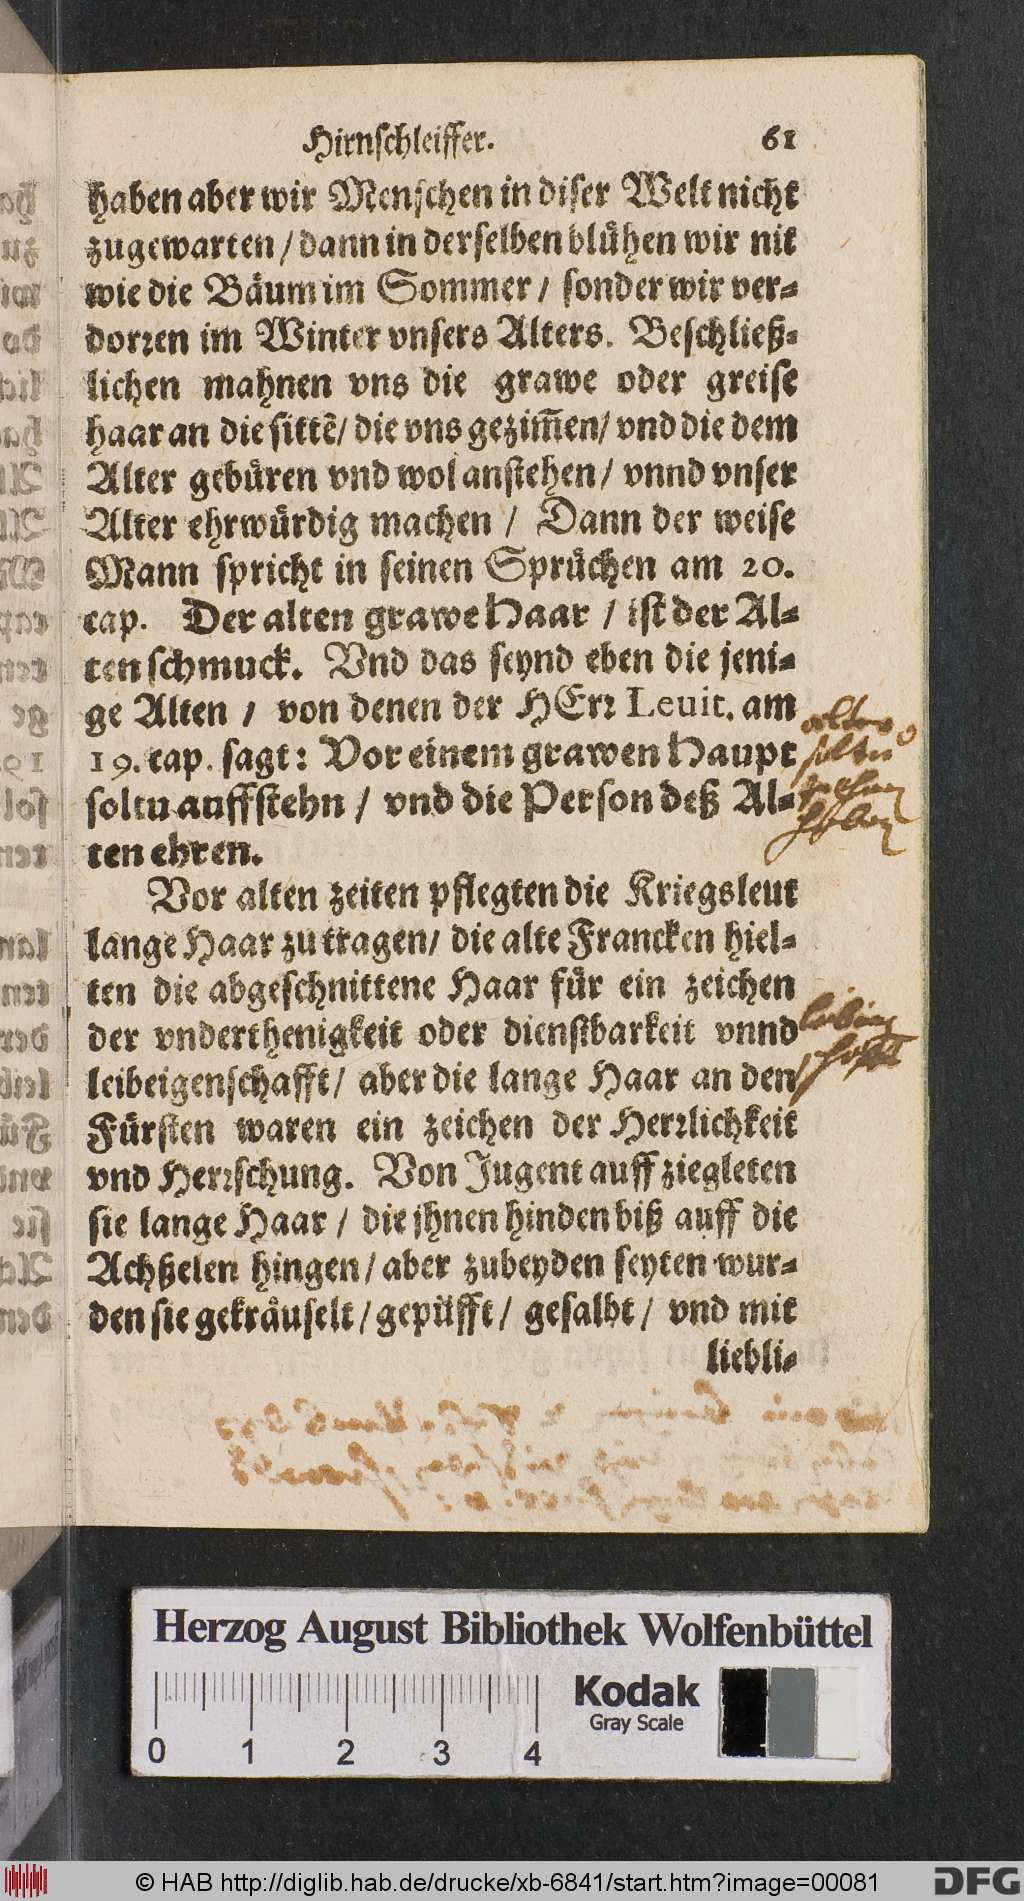 Hirnschleiffer. 61
haben aber wir Menschen in diser Welt nicht
zugewarten / dann in derselben blühen wir nit
wie die Bäum im Sommer / sonder wir ver-
dorren im Winter vnsers Alters. Beschließ-
lichen mahnen vns die grawe oder greise
haar an die sittẽ / die vns gezim̃en / vnd die dem
Alter gebüren vnd wol anstehen / vnnd vnser
Alter ehrwürdig machen / Dann der weise
Mann spricht in seinen Sprüchen am 20.
cap. Der alten grawe Haar / ist der Al-
ten schmuck. Vnd das seynd eben die jeni-
ge Alten / von denen der HErr Leuit. am
19. cap. sagt: Vor einem grawen Haupt
soltu auffstehn / vnd die Person deß Al-
ten ehren.
Vor alten zeiten pflegten die Kriegsleut
lange Haar zu tragen / die alte Francken hiel-
ten die abgeschnittene Haar für ein zeichen
der vnderthenigkeit oder dienstbarkeit vnnd
leibeigenschafft / aber die lange Haar an den
Fürsten waren ein zeichen der Herrlichkeit
vnd Herrschung. Von Jugent auff ziegleten
sie lange Haar / die jhnen hinden biß auff die
Achßelen hingen / aber zubeyden seyten wur-
den sie gekräuselt / gepüfft / gesalbt / vnd mit
liebli-
Herzog August Bibliothek Wolfenbüttel
Kodak
Gray Scale
0 1 2 3 4
© HAB http://diglib.hab.de/drucke/xb-6841/start.htm?image=00081
DFG